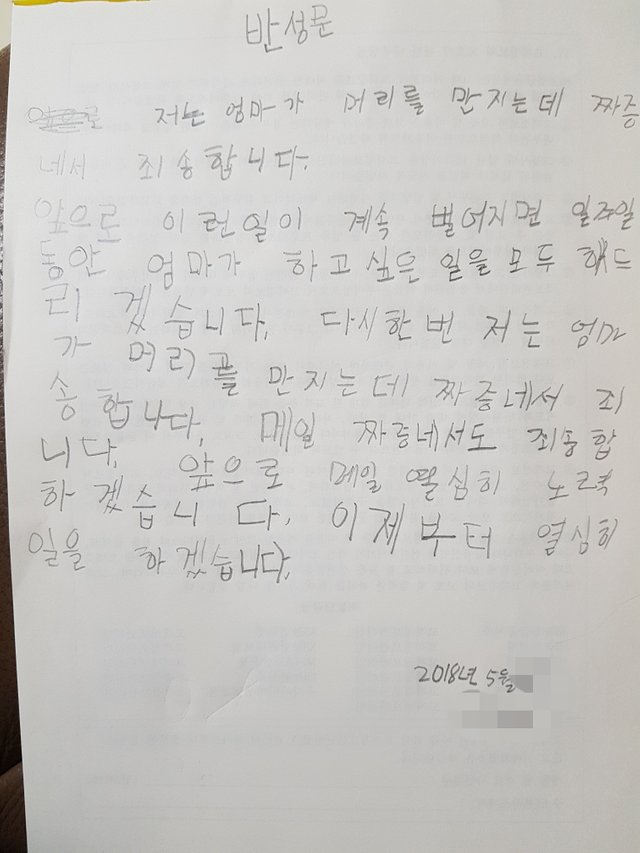 반성문
저는 엄마가 머리를 만지는데 짜증
네서 죄송합니다.
앞으로 이런일이 계속 벌어지면 일주일
동안 엄마가 하고싶은 일을 모두 해드
리겠습니다. 다시한번 저는 엄마
가 머리를 만지는데 짜증네서 죄
송합니다. 메일 짜증네서도 죄송합
니다. 앞으로 메일 열심히 노력
하겠습니다. 이제부터 열심히
일을 하겠습니다.
2018년 5월